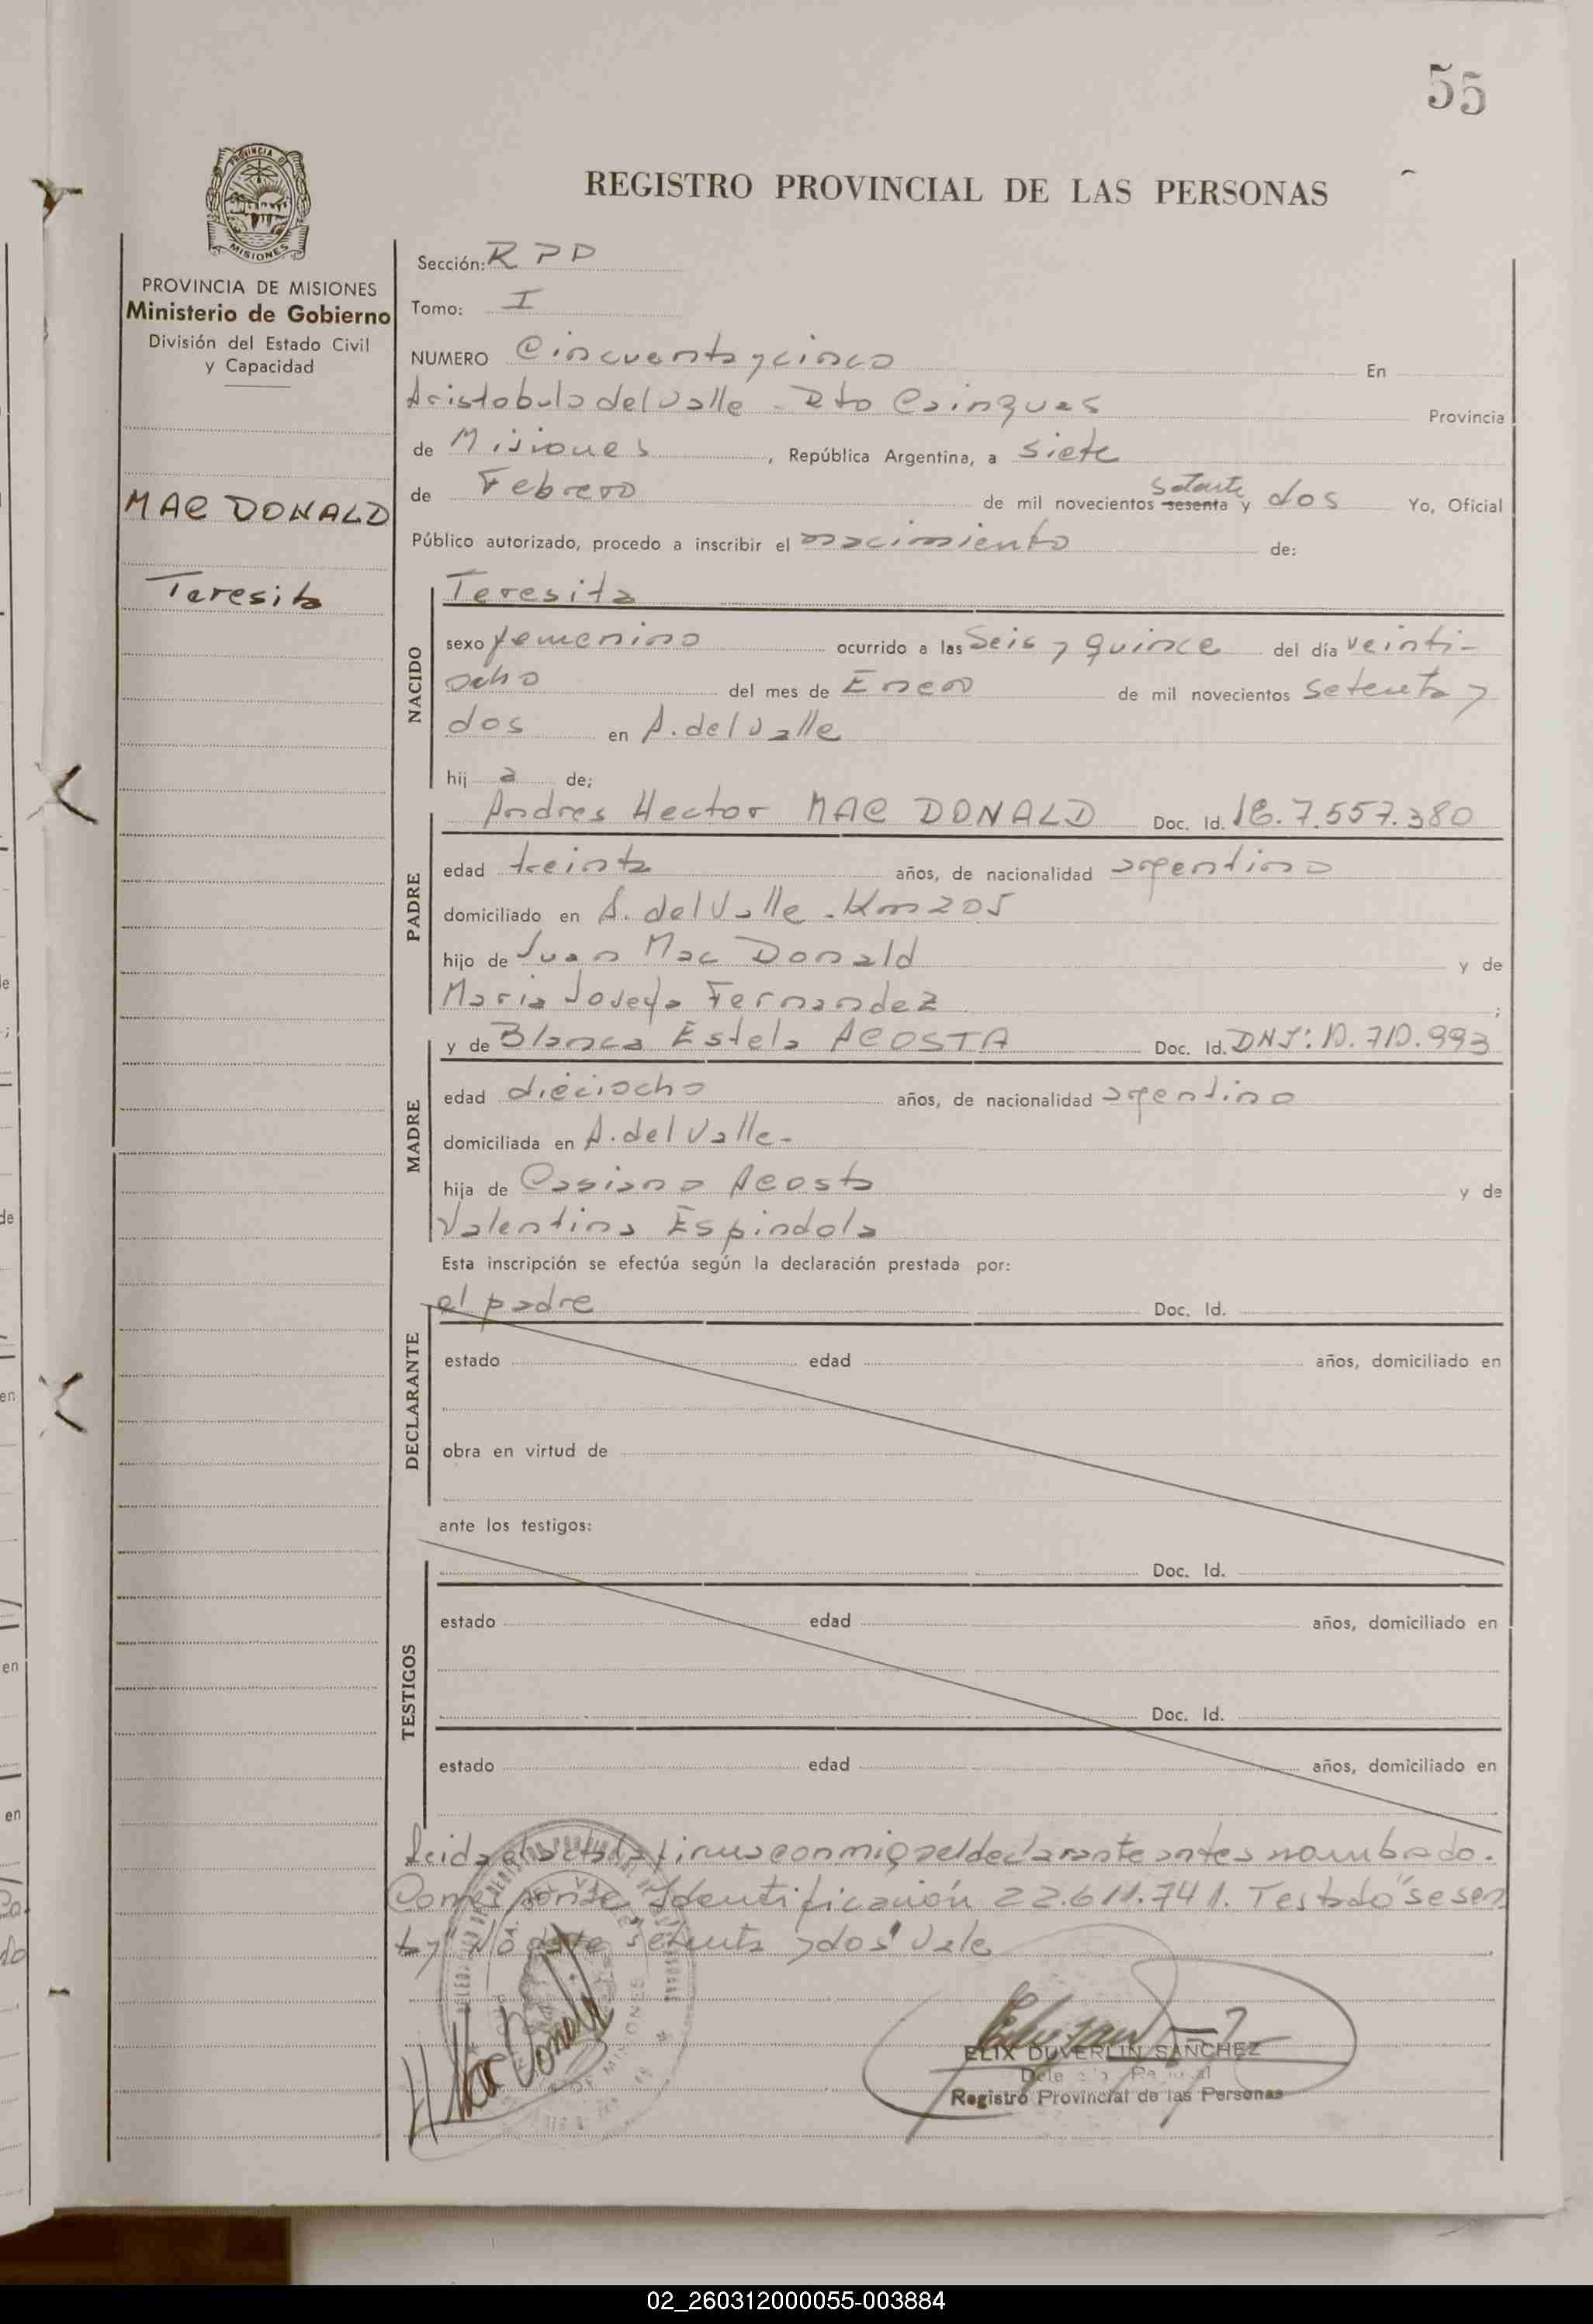 55
REGISTRO PROVINCIAL DE LAS PERSONAS
PROVINCIA DE MISIONES
Ministerio de Gobierno
División del Estado Civil
y Capacidad
MAC DONALD
Teresita
Sección: R P P
Tomo: I
NUMERO Cincuenta y cinco En
Aristobulo del Valle - Dto Cainguas Provincia
de Misiones, República Argentina, a siete
de Febrero de mil novecientos sesenta setenta y dos Yo, Oficial
Público autorizado, procedo a inscribir el nacimiento de:
NACIDO
Teresita
sexo femenino ocurrido a las Seis y quince del día veinti-
ocho del mes de Enero de mil novecientos setenta y
dos en A. del Valle
hij a de;
PADRE
Andres Hector MAC DONALD Doc. Id. 7.557.380
edad treinta años, de nacionalidad argentino
domiciliado en A. del Valle - Km 205
hijo de Juan Mac Donald y de
Maria Josefa Fernandez ;
MADRE
y de Blanca Estela ACOSTA Doc. Id. DNI: 10.710.993
edad dieciocho años, de nacionalidad argentina
domiciliada en A. del Valle-
hija de Casiano Acosta y de
Valentina Espindola
Esta inscripción se efectúa según la declaración prestada por:
DECLARANTE
el padre Doc. Id.
estado edad años, domiciliado en
obra en virtud de
ante los testigos:
TESTIGOS
Doc. Id.
estado edad años, domiciliado en
Doc. Id.
estado edad años, domiciliado en
Leida el acta la firma conmigo el declarante antes nombrado.
Corresponde Identificación 22.611.741. Testado "sesen
ta y" No vale setenta y dos Vale
Mac Donald
ELIX DUVERLIN SANCHEZ
Registro Provincial de las Personas
02_260312000055-003884